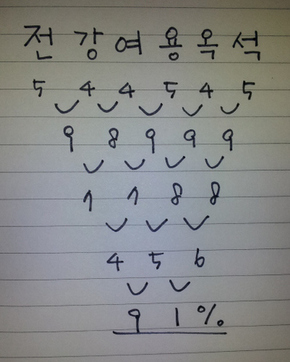 전 강 여 용 옥 석
5 4 4 5 4 5
9 8 9 9 9
7 7 8 8
4 5 6
9 1 %